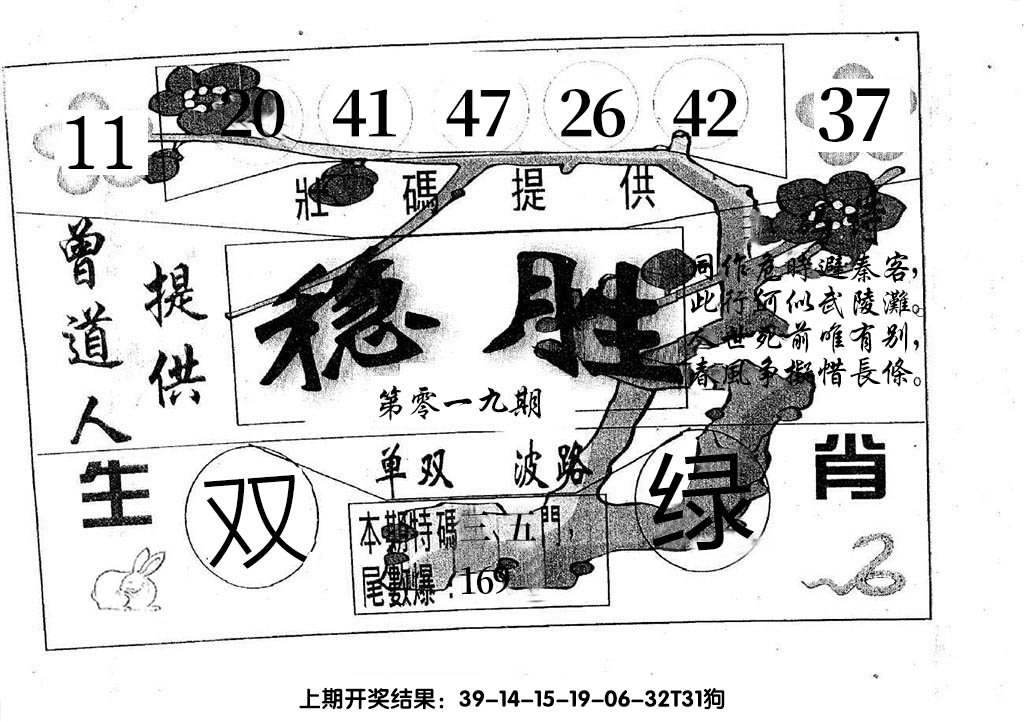 11 20 41 47 26 42 37
壯碼提供
特
曾道人
提供
稳胜
第零一九期
同作危時避秦客，
此行何似武陵灘。
人世死前唯有别，
春風争擬惜長條。
生肖
单双 波路
双
绿
本期特碼三、五門，
尾數爆：169
上期开奖结果：39-14-15-19-06-32T31狗